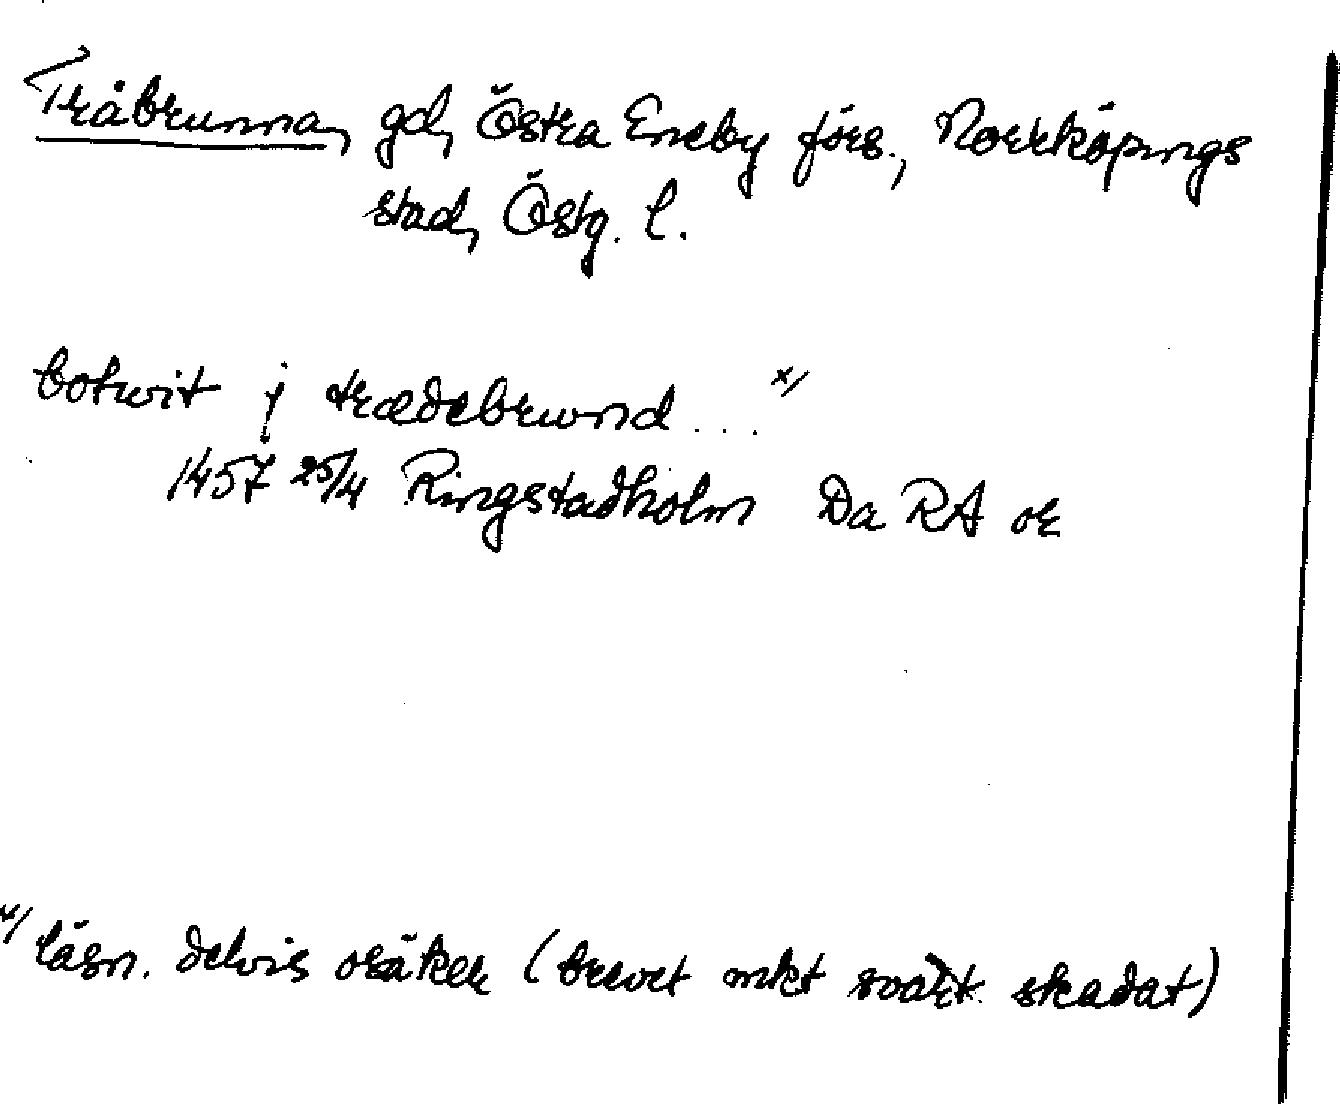 Tråbrunna, gd, Östra Eneby förs., Norrköpings
stad, Östg. l.
botwit j trædebrwnd ... x/
1457 25/4 Ringstadholm Da RA or
x/ läsn. delvis osäker (brevet mkt svårt skadat)